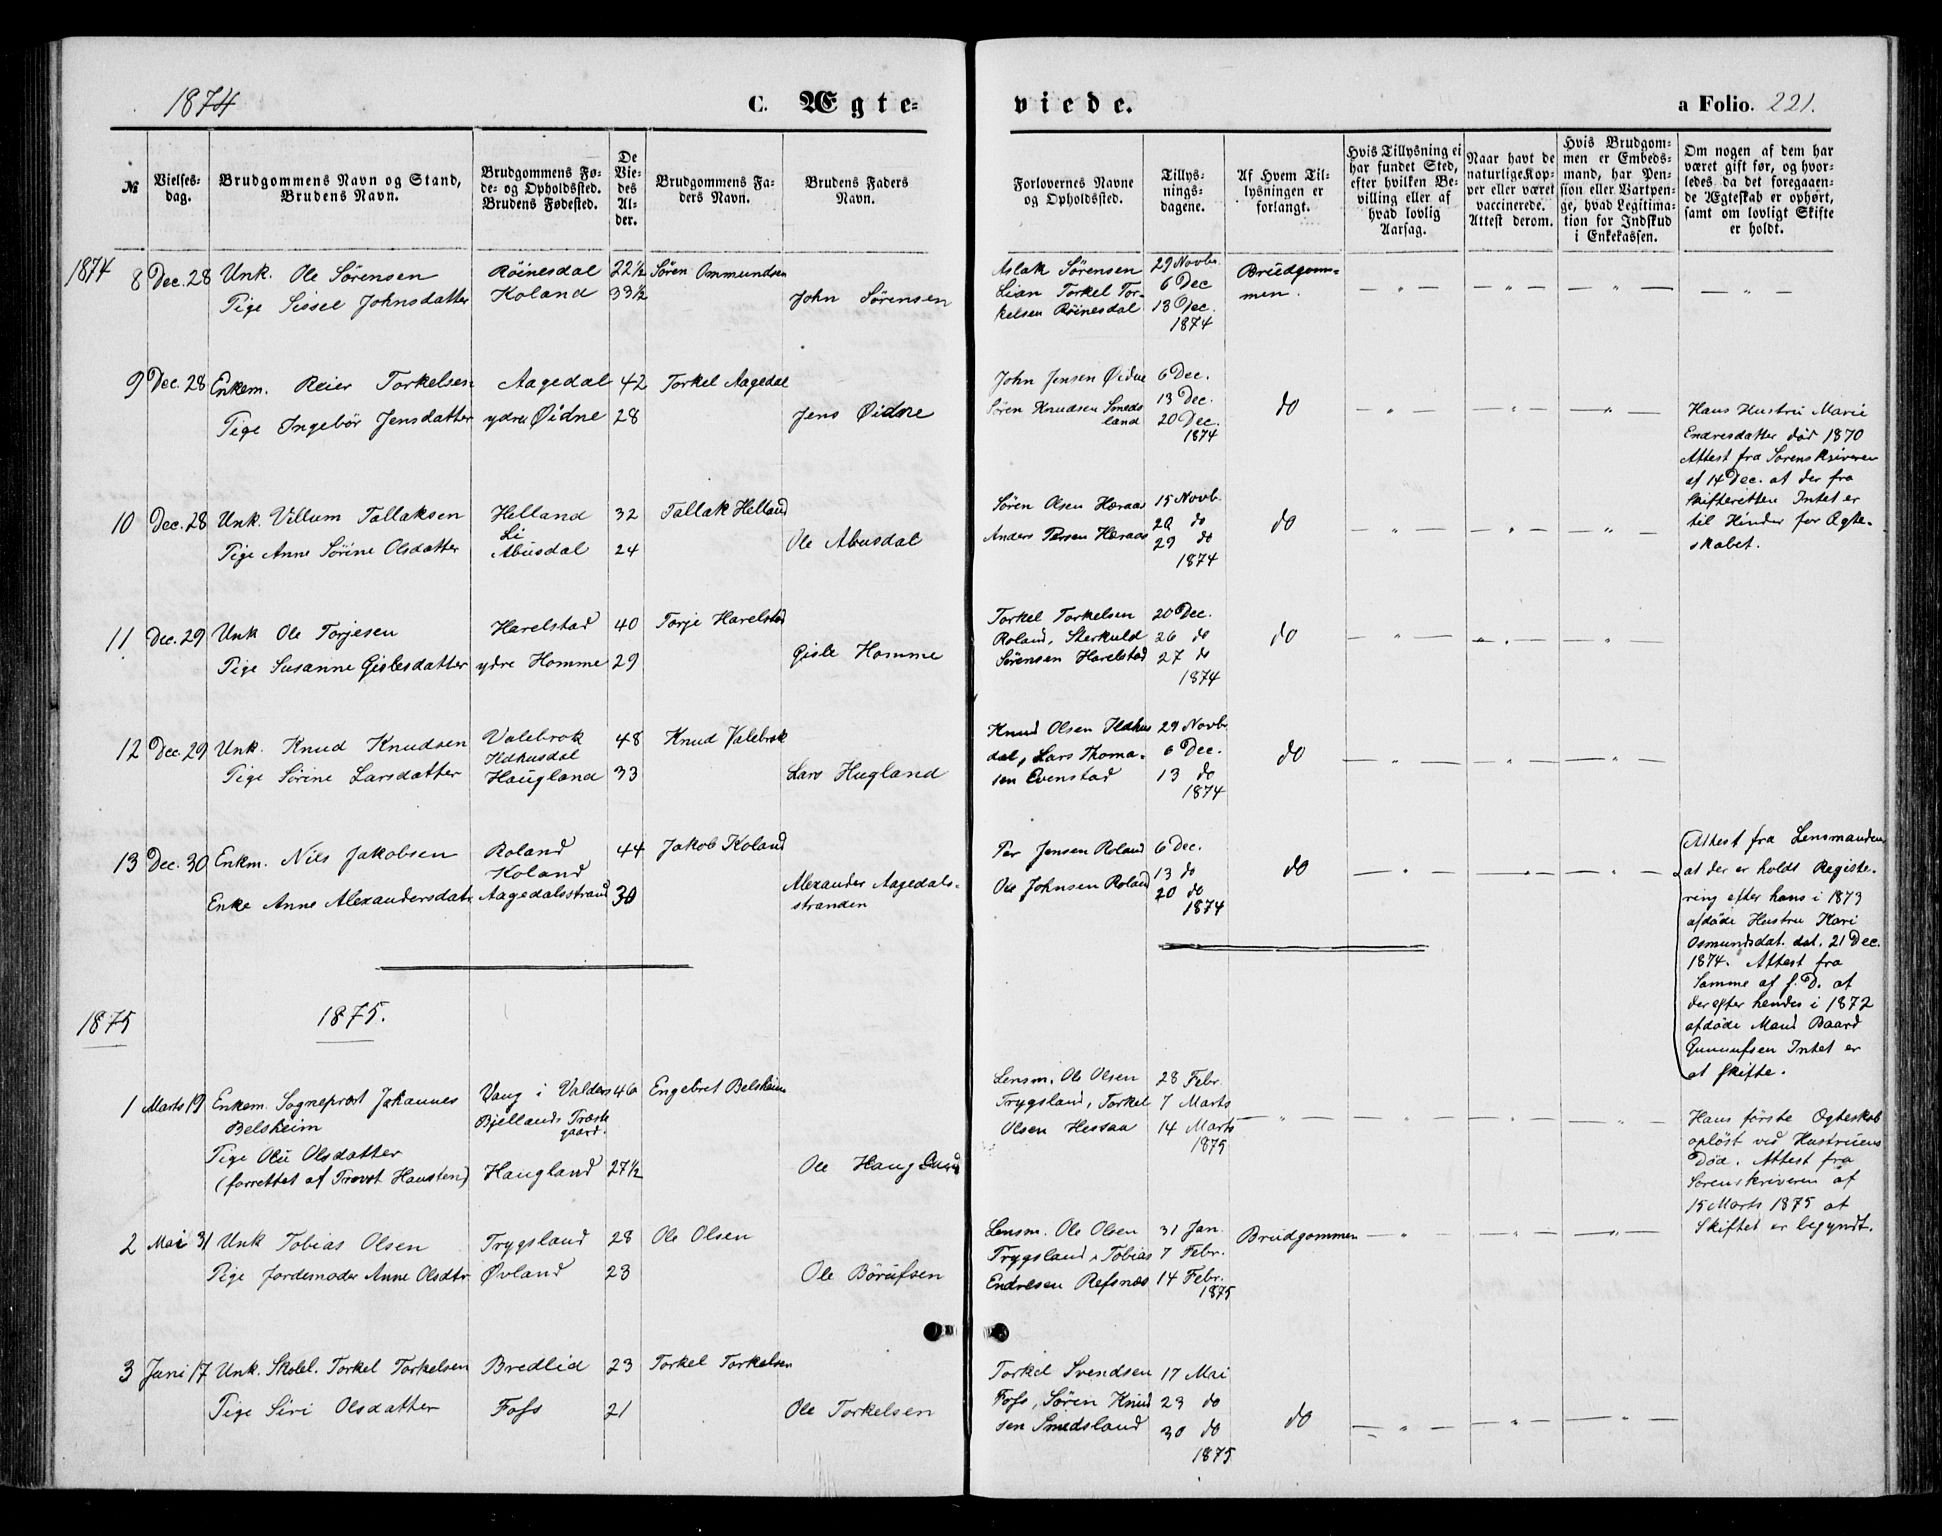 1874
C. Ægte-
viede.
a Folio. 221.
№
Vielses-
dag.
Brudgommens Navn og Stand,
Brudens Navn.
Brudgommens Fø-
de- og Opholdssted.
Brudens Fødested.
De
Vie-
des
Al-
der.
Brudgommens Fa-
ders Navn.
Brudens Faders
Navn.
Forlovernes Navne
og Opholdssted.
Tillys-
nings-
dagene.
Af Hvem Til-
lysningen er
forlangt.
Hvis Tillysning ei
har fundet Sted,
efter hvilken Be-
villing eller af
hvad lovlig
Aarsag.
Naar havt de
naturlige Kop-
per eller været
vaccinerede.
Attest derom.
Hvis Brudgom-
men er Embeds-
mand, har Pen-
sion eller Vartpen-
ge, hvad Legitima-
tion for Indskud
i Enkekassen.
Om nogen af dem har
været gift før, og hvor-
ledes da det foregaaen-
de Ægteskab er ophørt,
samt om lovligt Skifte
er holdt.
1874 8 Dec. 28 Unk. Ole Sørensen Röinesdal 22 1/2 Sören Ommundsen
Pige Sissel Johnsdatter Koland 33 1/2 John Sörensen
Aslak Sörensen 29 Novbr Brudgom-
Lian Torkel Tor- 6 Dec men. — " — — " — — " — — " —
kelsen Röinesdal 13 Dec.
1874
9 Dec. 28 Enkem. Reier Torkelsen Aagedal 42 Torkel Aagedal
Pige Ingebör Jensdatter ydre Øidne 28 Jens Øidne
John Jensen Øidne 6 Dec.
Sören Knudsen Smeds 13 Dec. do — " — — " — — " —
land 20 Dec.
1874
Hans Hustru Marie
Endresdatter död 1870
Attest fra Sorenskriveren
af 14 Dec. at der fra
Skifteretten Intet er
til Hinder for Ægte-
skabet.
10 Dec. 28 Unk. Villum Tallaksen Helland 32 Tallak Helland
Li
Pige Anne Sörine Olsdatter Abusdal 24 Ole Abusdal
Sören Olsen Hæraas 15 Novb.
22 do do — " — — " — — " —
Anders Persen Hæraas 29 do
1874
11 Dec. 29 Unk Ole Torjesen Harelstad 40 Torje Harelstad
Pige Susanne Gislesdatter ydre Homme 29 Gisle Homme
Torkel Torkelsen 20 Dec.
Roland, Sterkuld 26 do do — " — — " — — " —
Sörensen Harelstad 27 do
1874
12 Dec. 29 Unk. Knud Knudsen Valebrok 48 Knud Valebrok
Ildhusdal
Pige Sörine Larsdatter Haugland 33 Lars Hugland
Knud Olsen Ildhus 29 Novbr
dal, Lars Thoma- 6 Dec. do — " — — " — — " —
sen Evenstad 13 do
1874
13 Dec. 30 Enkm. Nils Jakobsen Roland 44 Jakob Koland
Koland
Enke Anne Alexandersdatr. Aagedalsstrand 30 Alexander Aagedals-
stranden
Per Jensen Roland 6 Dec.
13 do do — " — — " — — " —
Ole Johnsen Roland 20 do
1874
Attest fra Lensmanden
at der er holdt Registe-
ring efter hans i 1873
afdöde Hustru Kari
Osmundsdat. dat. 21 Dec.
1874. Attest fra
Samme af s. D. at
der efter hendes i 1872
afdöde Mand Baard
Gunnufsen Intet er
at skifte.
1875
1875.
1 Marts 19 Enkem. Sognepræst Johannes Vang i Valders 46 Engebret Belsheim
Belsheim Bjellands Præste
gaard.
Pige Oli Olsdatter
(forrettet af Provst Hansten) Haugland 27 1/2 Ole Haugland
Lensm. Ole Olsen 28 Febr.
Trygsland, Torkel 7 Marts — " — — " — — " — — " —
Olsen Hessaa 14 Marts
1875
Hans förste Ægteskab
oplöst ved Hustruens
Död. Attest fra
Sorenskriveren af
15 Marts 1875 at
Skiftet er begyndt.
2 Mai 31 Unk Tobias Olsen Trygsland 28 Ole Olsen
Pige Jordemoder Anne Olsdtr. Øvland 23 Ole Börufsen
Lensm. Ole Olsen 31 Jan. Brudgommen — " — — " — — " —
Trygsland, Tobias 7 Febr.
Endresen Refsnæs 14 Febr.
1875
3 Juni 17 Unk. Skolel. Torkel Torkelsen Bredlid 23 Torkel Torkelsen
Pige Siri Olsdatter Foss 21 Ole Torkelsen
Torkel Svendsen 17 Mai
Foss, Sören Knud 23 do do — " — — " — — " —
sen Smedsland 30 do
1875